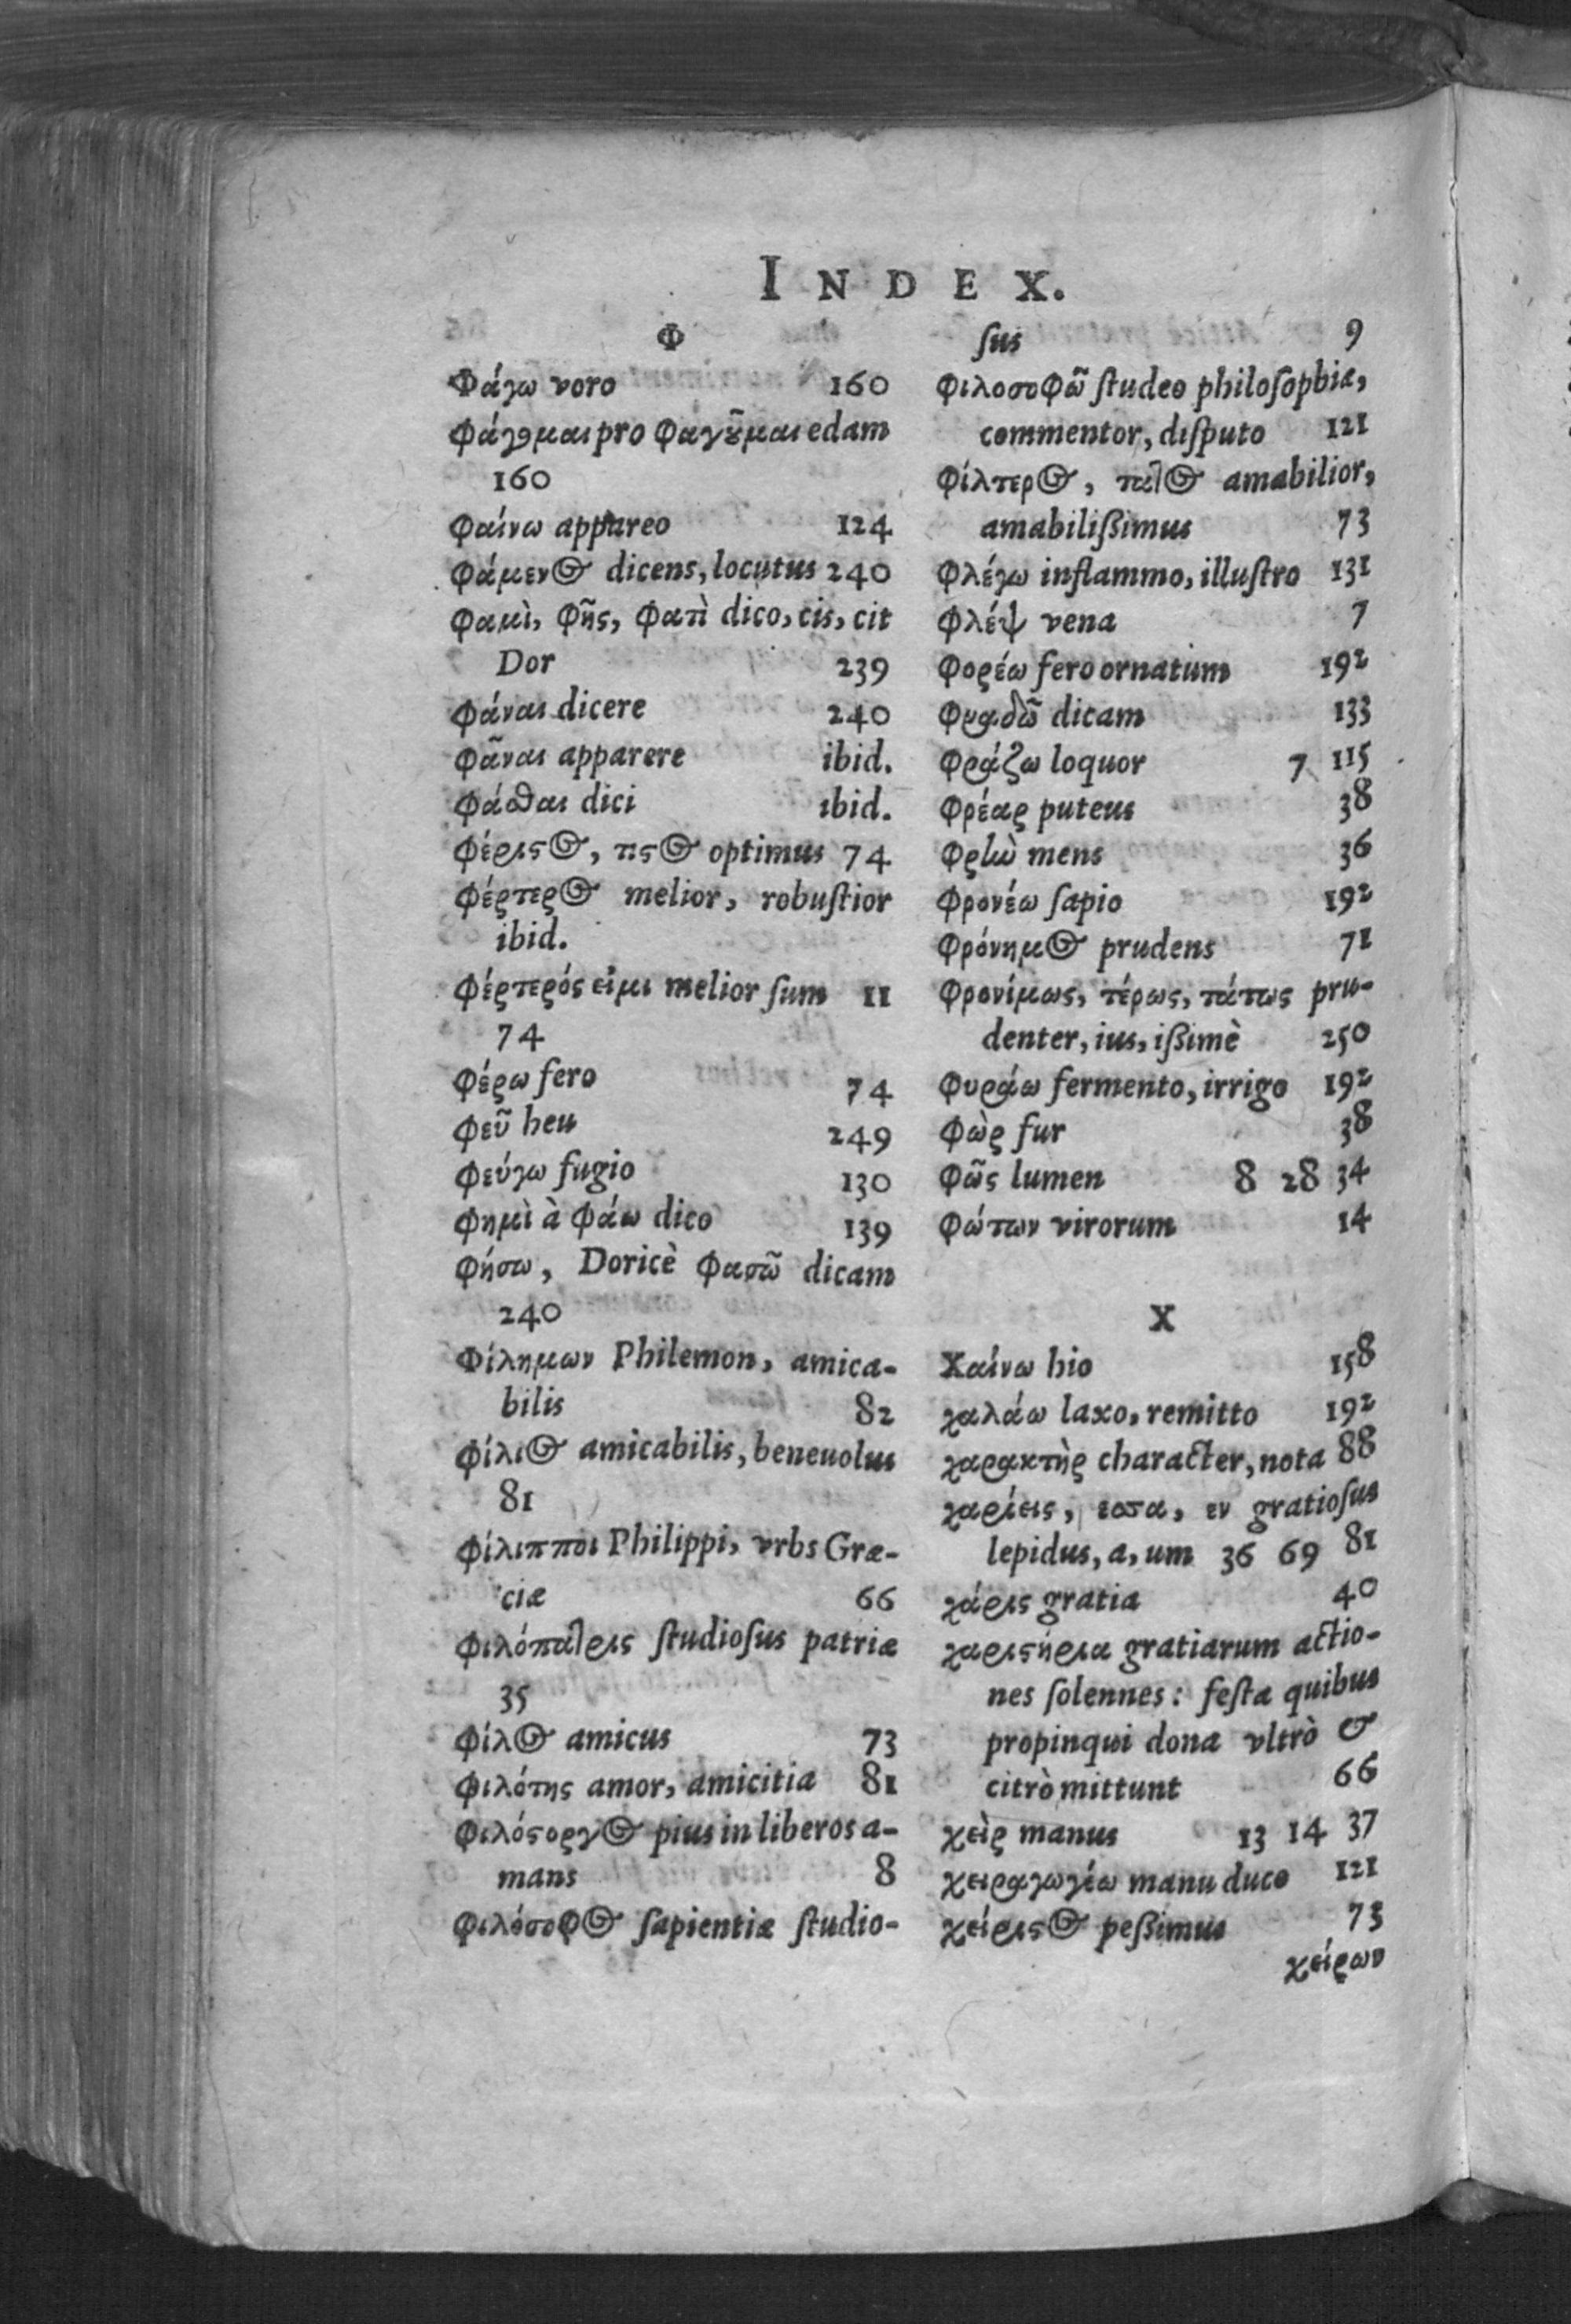 INDEX.
Φ
Φάγω voro 160
Φάγομαι pro Φαγοῦμαι edam
160
Φαίνω appareo 124
Φάμενος dicens, locutus 240
Φαμὶ, Φῂς, Φατὶ dico, cis, cit
Dor 239
Φάναι dicere 240
Φᾶναι apparere ibid.
Φάσθαι dici ibid.
Φέριστος, τιστος optimus 74
Φέρτερος melior, robuſtior
ibid.
Φέρτερός εἰμι melior ſum 11
74
Φέρω fero 74
Φεῦ heu 249
Φεύγω fugio 130
Φημὶ à Φάω dico 139
Φήσω, Doricè Φασῶ dicam
240
Φίλημων Philemon, amica-
bilis 82
Φίλιος amicabilis, beneuolus
81
Φίλιπποι Philippi, vrbs Græ-
ciæ 66
Φιλόπατρις ſtudioſus patriæ
35
Φίλος amicus 73
Φιλότης amor, amicitia 81
Φιλόστοργος pius in liberos a-
mans 8
Φιλόσοφος ſapientiæ ſtudio-
ſus 9
ΦιλοσοΦῶ ſtudeo philoſophiæ,
commentor, diſputo 121
Φίλτερος, τατος amabilior,
amabiliſſimus 73
Φλέγω inflammo, illuſtro 131
Φλέψ vena 7
Φορέω fero ornatum 192
Φραδῶ dicam 133
Φράζω loquor 7 115
Φρέαρ puteus 38
Φρὴν mens 36
Φρονέω ſapio 192
Φρόνημος prudens 71
Φρονίμως, τέρως, τάτως pru-
denter, ius, iſſimè 250
Φυράω fermento, irrigo 192
Φὼρ fur 38
Φῶς lumen 8 28 34
Φώτων virorum 14
X
Χαίνω hio 158
χαλάω laxo, remitto 192
χαρακτὴρ character, nota 88
χαρίεις, εσσα, εν gratioſus
lepidus, a, um 36 69 81
χάρις gratia 40
χαριστήρια gratiarum actio-
nes ſolennes: feſta quibus
propinqui dona vltrò &
citrò mittunt 66
χεὶρ manus 13 14 37
χειραγωγέω manu duco 121
χείριστος peſſimus 73
χείρων